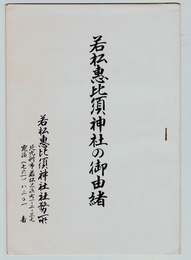 若松恵比須神社の御由緒
若松恵比須神社社務所
北九州市若松区
電話(七六一)